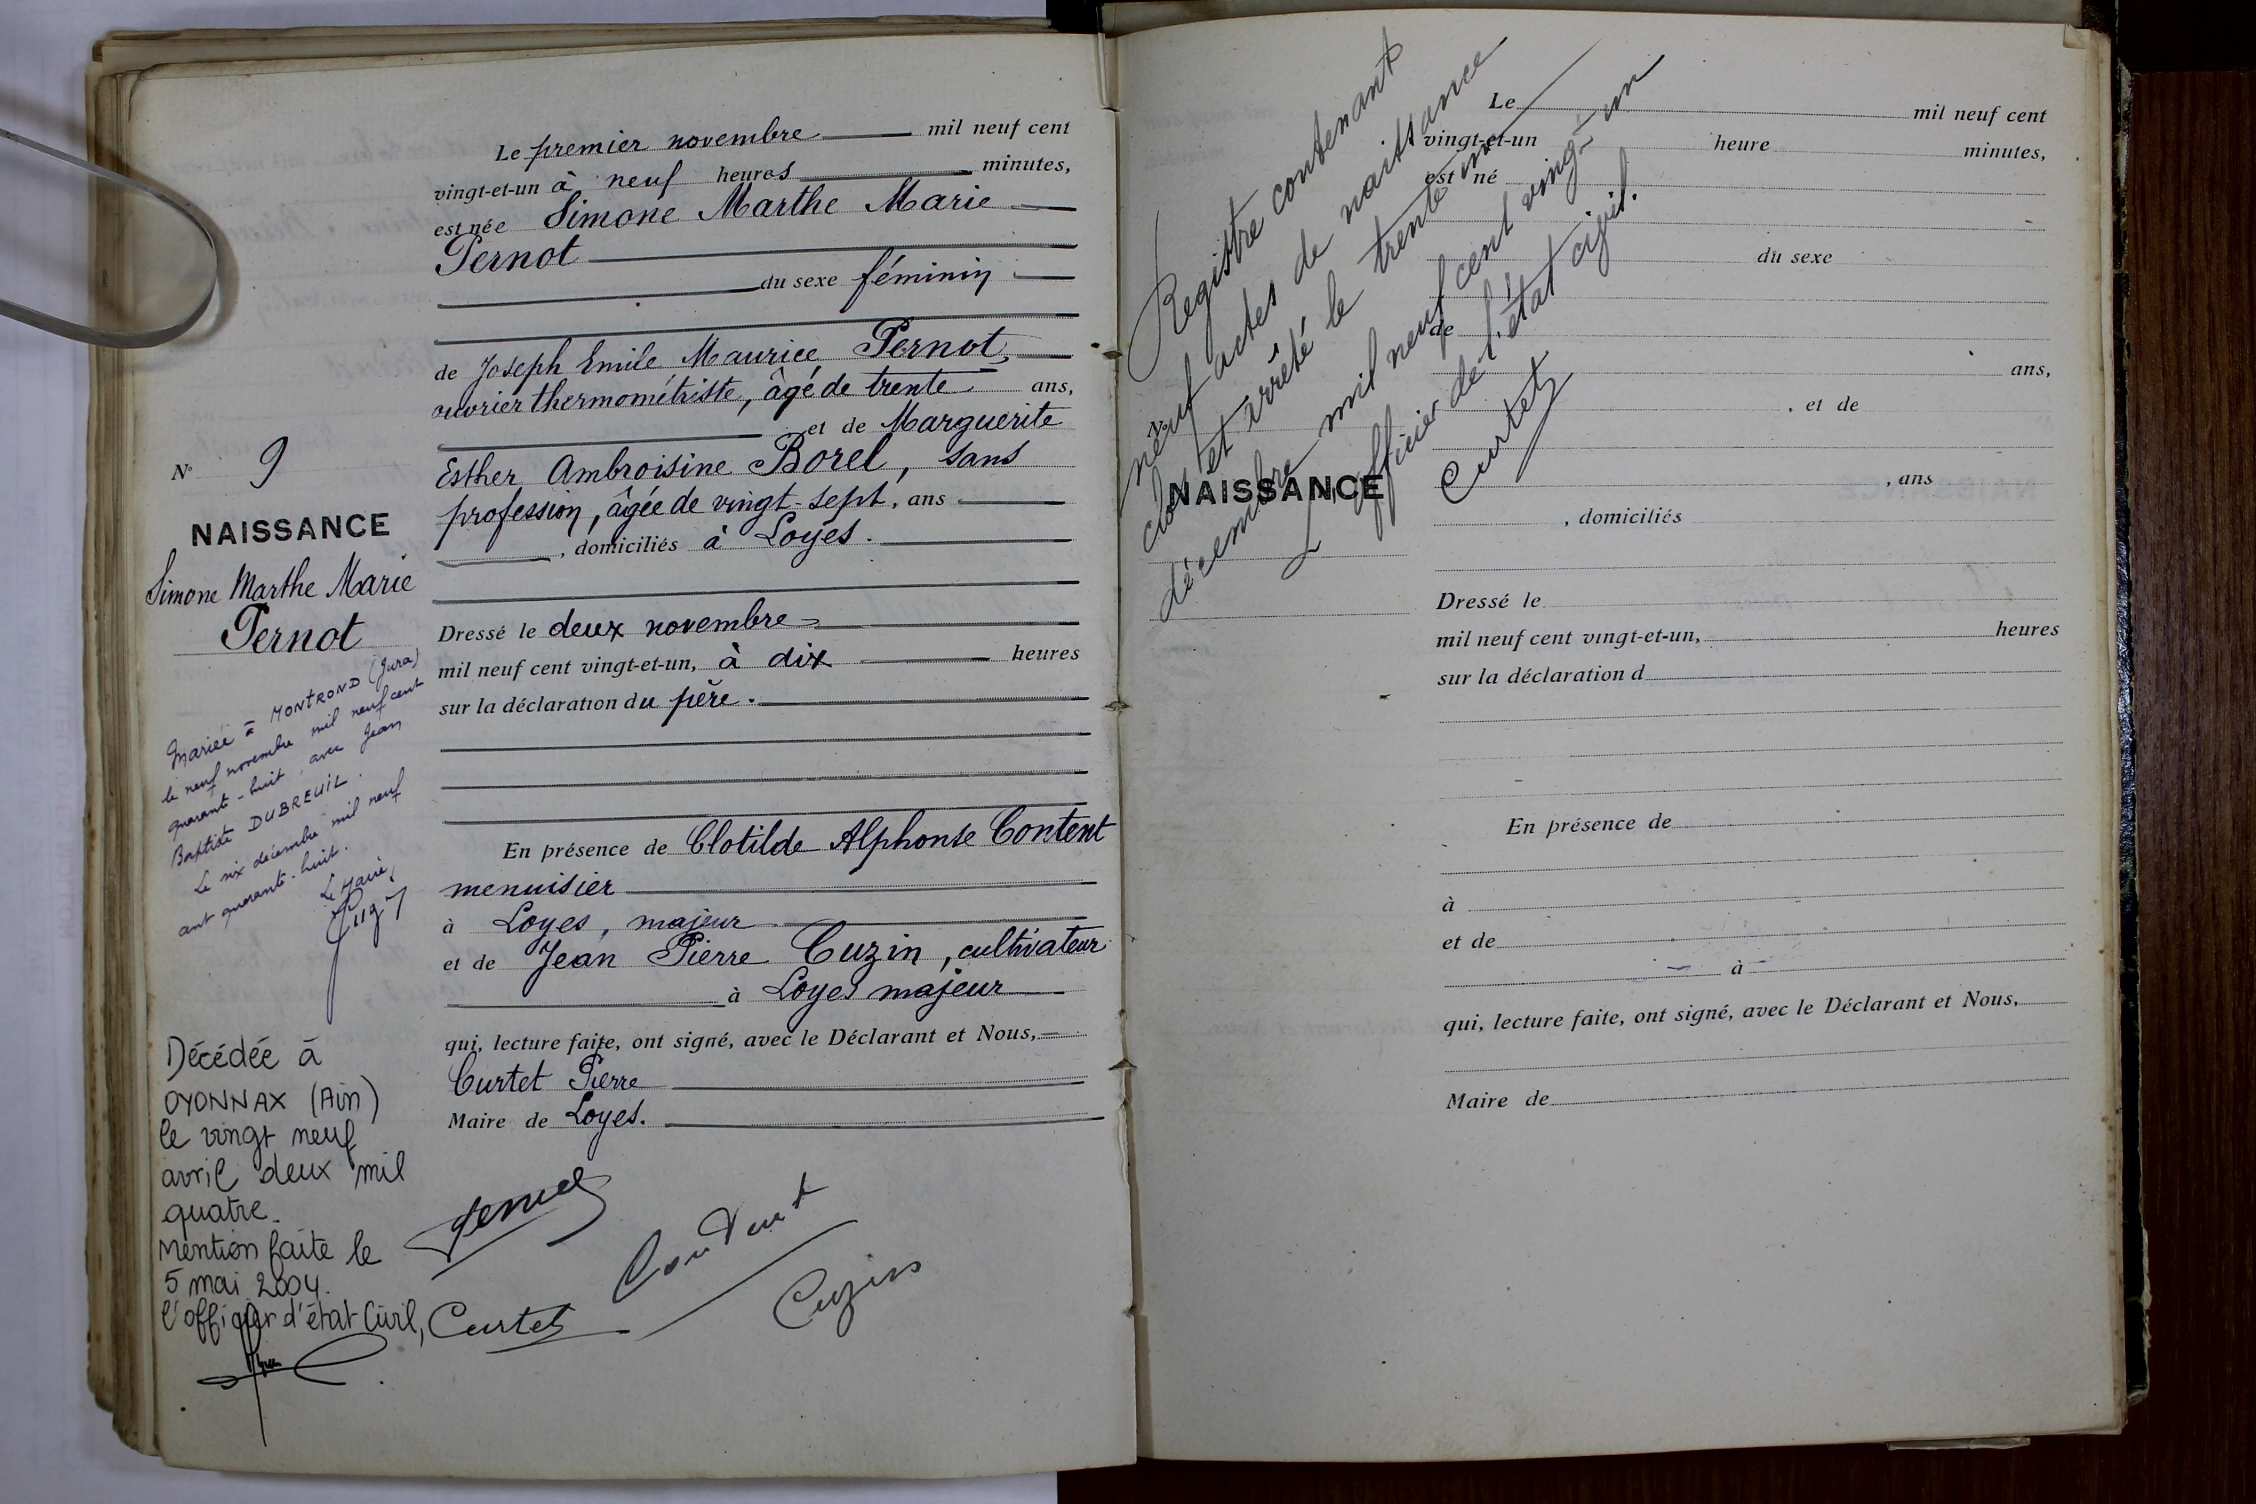 Le premier novembre mil neuf cent
vingt-et-un à neuf heures minutes,
est née Simone Marthe Marie
Pernot
du sexe féminin
de Joseph Emile Maurice Pernot
ouvrier thermométriste, âgé de trente ans,
et de Marguerite
Esther Ambroisine Borel, sans
profession, âgée de vingt-sept, ans
, domiciliés à Loyes.
Dressé le deux novembre
mil neuf cent vingt-et-un, à dix heures
sur la déclaration du père.
En présence de Clotilde Alphonse Content
menuisier
à Loyes, majeur
et de Jean Pierre Cuzin, cultivateur
à Loyes majeur
qui, lecture faite, ont signé, avec le Déclarant et Nous,
Curtet Pierre
Maire de Loyes.
Content
Cuzin
Curtet
N° 9
NAISSANCE
Simone Marthe Marie
Pernot
Mariée à MONTROND (Jura)
le neuf novembre mil neuf cent
quarante-huit avec Jean
Baptiste DUBREUIL.
Le six décembre mil neuf
cent quarante-huit.
Le Maire,
Décédée à
OYONNAX (Ain)
le vingt neuf
avril deux mil
quatre.
Mention faite le
5 mai 2004.
l'officier d'état Civil,
Registre contenant
neuf actes de naissance
clos et arrêté le trente un
décembre mil neuf cent vingt-un
L'officier de l'état civil.
Curtet
Le mil neuf cent
vingt-et-un heure minutes,
est né
du sexe
de
ans,
, et de
, ans
, domiciliés
N°
NAISSANCE
Dressé le
mil neuf cent vingt-et-un, heures
sur la déclaration d
En présence de
à
et de
à
qui, lecture faite, ont signé, avec le Déclarant et Nous,
Maire de